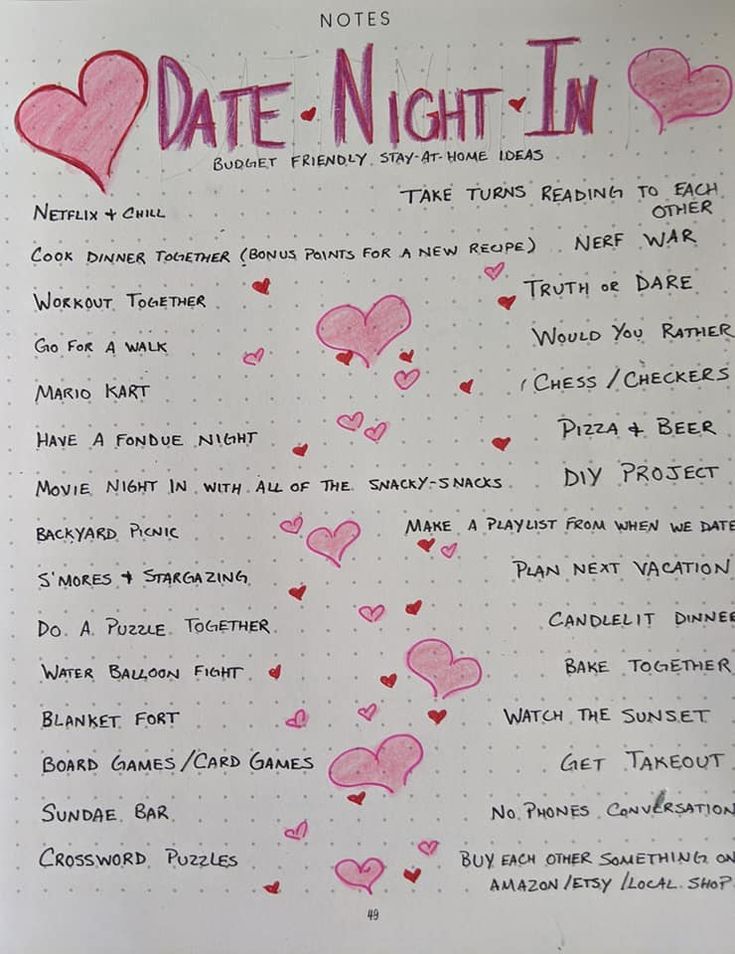 NOTES
DATE · NIGHT · IN
BUDGET FRIENDLY STAY-AT-HOME IDEAS
NETFLIX + CHILL
COOK DINNER TOGETHER (BONUS POINTS FOR A NEW RECIPE)
WORKOUT TOGETHER
GO FOR A WALK
MARIO KART
HAVE A FONDUE NIGHT
MOVIE NIGHT IN WITH ALL OF THE SNACKY-SNACKS
BACKYARD PICNIC
S'MORES + STARGAZING
DO A PUZZLE TOGETHER
WATER BALLOON FIGHT
BLANKET FORT
BOARD GAMES/CARD GAMES
SUNDAE BAR
CROSSWORD PUZZLES
TAKE TURNS READING TO EACH
OTHER
NERF WAR
TRUTH OR DARE
WOULD YOU RATHER
CHESS / CHECKERS
PIZZA & BEER
DIY PROJECT
MAKE A PLAYLIST FROM WHEN WE DATE
PLAN NEXT VACATION
CANDLELIT DINNE
BAKE TOGETHER
WATCH THE SUNSET
GET TAKEOUT
NO PHONES CONVERSATION
BUY EACH OTHER SOMETHING ON
AMAZON/ETSY/LOCAL SHOP
49